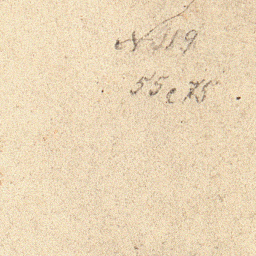 N 119
55 c 75